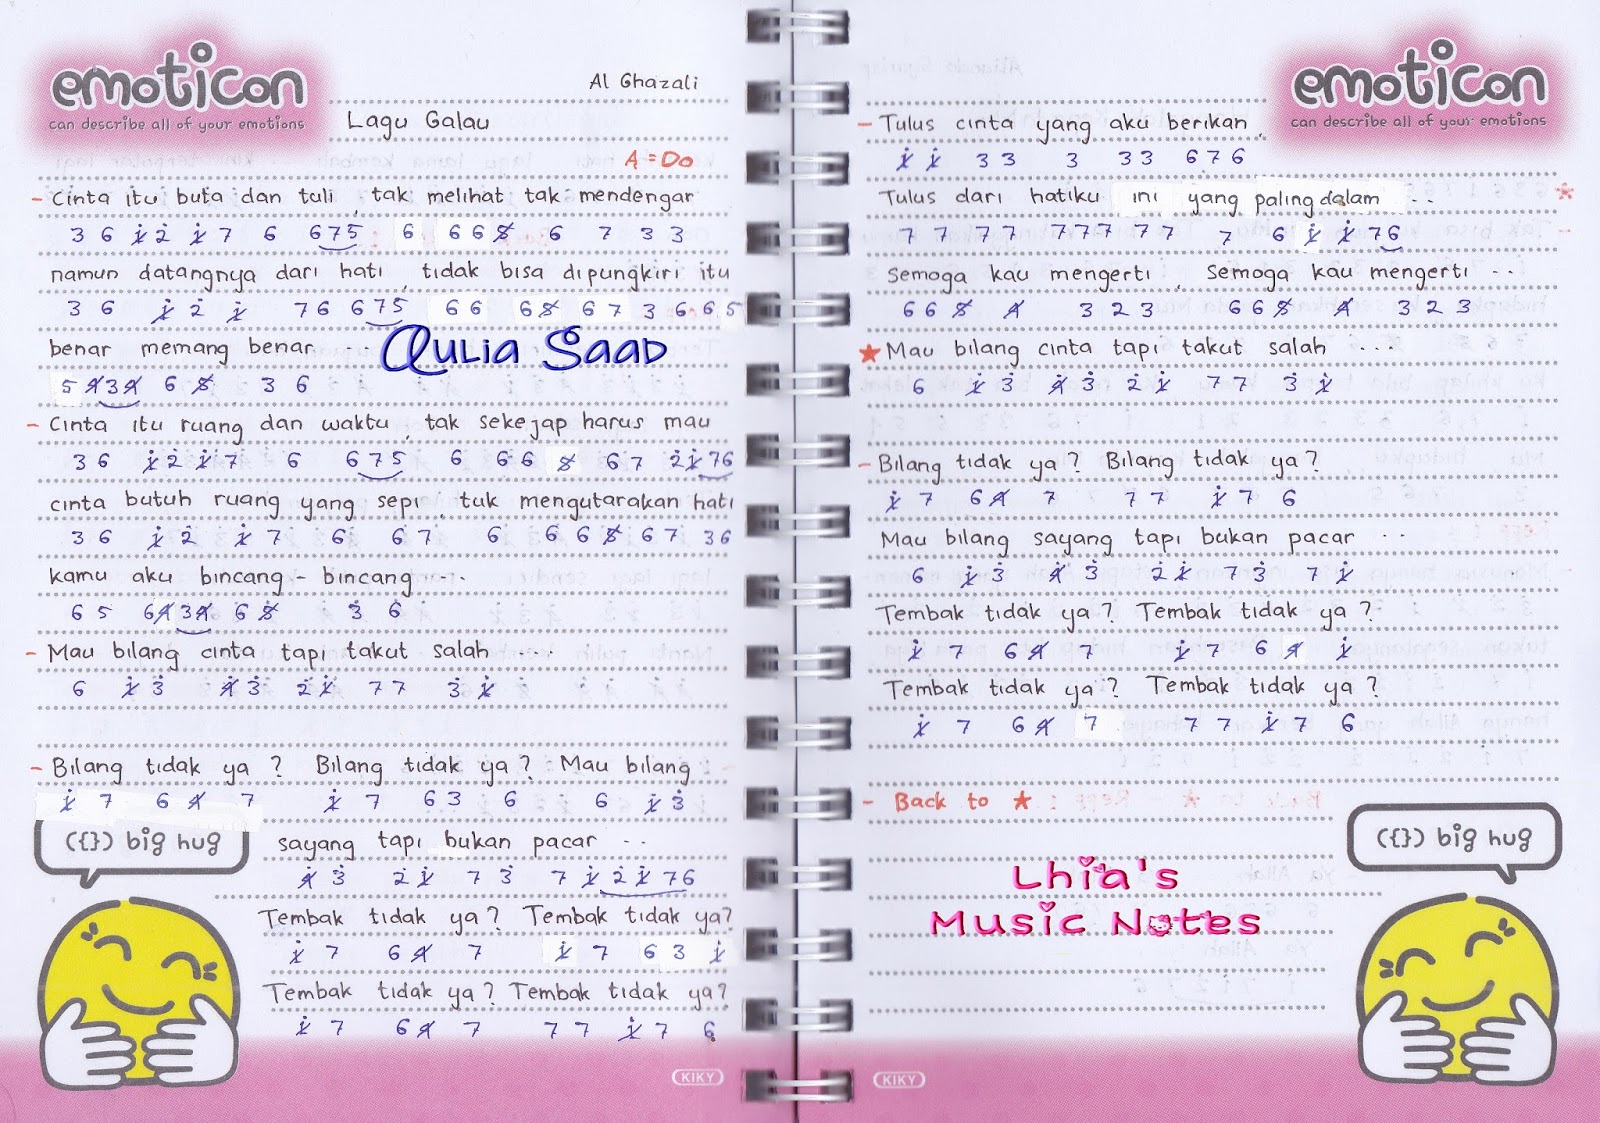 emoticon
can describe all of your emotions
Al Ghazali
Lagu Galau
A = Do
- Cinta itu buta dan tuli, tak melihat tak mendengar
3 6 1 2 1 7 6 675 6 6 6 5 6 7 3 3
namun datangnya dari hati, tidak bisa dipungkiri itu
3 6 1 2 1 7 6 6 7 5 6 6 6 5 6 7 3 6 6 5
benar memang benar ...
Aulia Saad
5 4 3 4 6 5 3 6
- Cinta itu ruang dan waktu, tak sekejap harus mau
3 6 1 2 1 7 6 6 7 5 6 6 6 5 6 7 2 1 7 6
cinta butuh ruang yang sepi, tuk mengutarakan hati
3 6 1 2 1 7 6 6 7 6 6 6 5 6 7 3 6
kamu aku bincang - bincang ...
6 5 6 4 3 4 6 5 3 6
- Mau bilang cinta tapi takut salah ...
6 1 3 4 3 2 1 7 7 3 1
- Bilang tidak ya ? Bilang tidak ya ? Mau bilang
1 7 6 4 7 1 7 6 3 6 6 1 3
({}) big hug
sayang tapi bukan pacar ..
4 3 2 1 7 3 7 1 2 1 7 6
Tembak tidak ya ? Tembak tidak ya?
1 7 6 4 7 1 7 6 3 1
Tembak tidak ya? Tembak tidak ya?
1 7 6 4 7 7 7 1 7 6
KIKY
emoticon
can describe all of your emotions
- Tulus cinta yang aku berikan,
1 1 3 3 3 3 3 6 7 6
Tulus dari hatiku ini yang paling dalam ..
7 7 7 7 7 7 7 7 7 7 6 1 1 7 6
Semoga kau mengerti, Semoga kau mengerti ..
6 6 5 4 3 2 3 6 6 5 4 3 2 3
★ Mau bilang cinta tapi takut salah ...
6 1 3 4 3 2 1 7 7 3 1
- Bilang tidak ya ? Bilang tidak ya ?
1 7 6 4 7 7 7 1 7 6
Mau bilang sayang tapi bukan pacar ..
6 1 3 4 3 2 1 7 3 7 1
Tembak tidak ya ? Tembak tidak ya ?
1 7 6 4 7 1 7 6 4 1
Tembak tidak ya ? Tembak tidak ya ?
1 7 6 4 7 7 7 1 7 6
- Back to ★
({}) big hug
Lhia's
Music Notes
KIKY